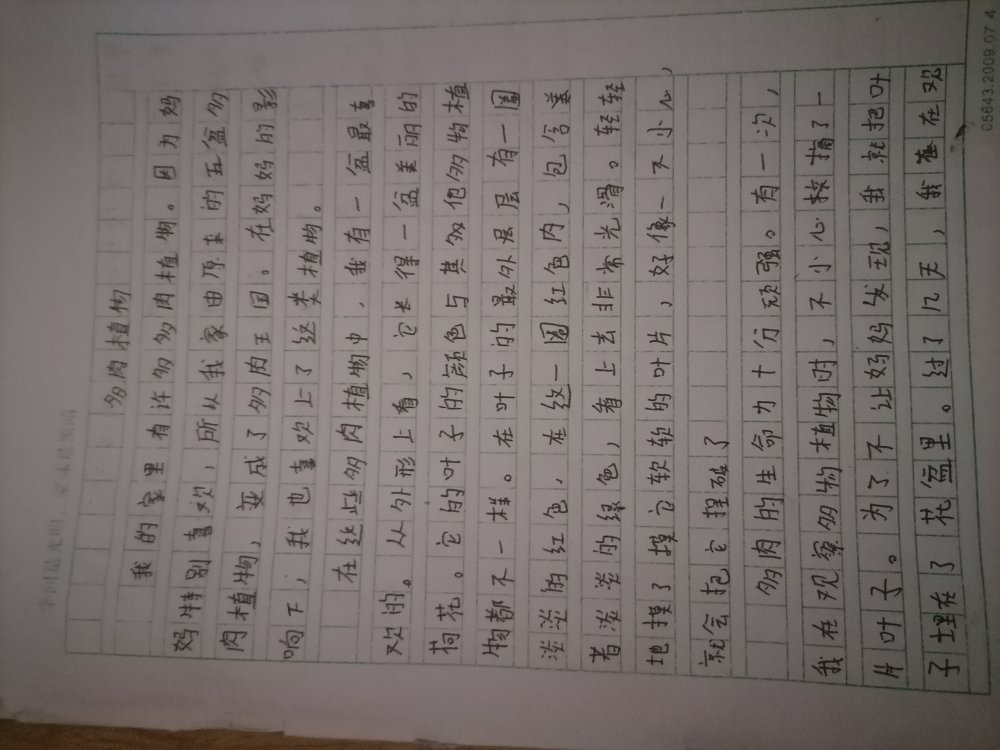 多肉植物
我的家里有许多多肉植物。因为妈
妈特别喜欢，所以我家由原来的五盆多
肉植物，变成了多肉王国。在妈妈的影
响下，我也喜欢上了这类植物。
在这些多肉植物中，我有一盆最喜
欢的。从外形上看，它长得一盆美丽的
荷花。它的叶子的颜色与其多他多物植
物都不一样。在叶子的最外层层有一圈
淡淡的红色，在这一圈红色内，包含着
者淡淡的绿色，看上去非常光滑。轻轻
地摸了摸它软软的叶片，好像一不小心，
就会把它捏破了
多肉的生命力十分顽强。有一次，
我在观察多物植物时，不小心按掉了一
片叶子。为了不让妈妈发现，我就把叶
子埋在了花盆里。过了几天，我在在观
05643.2009.07.4